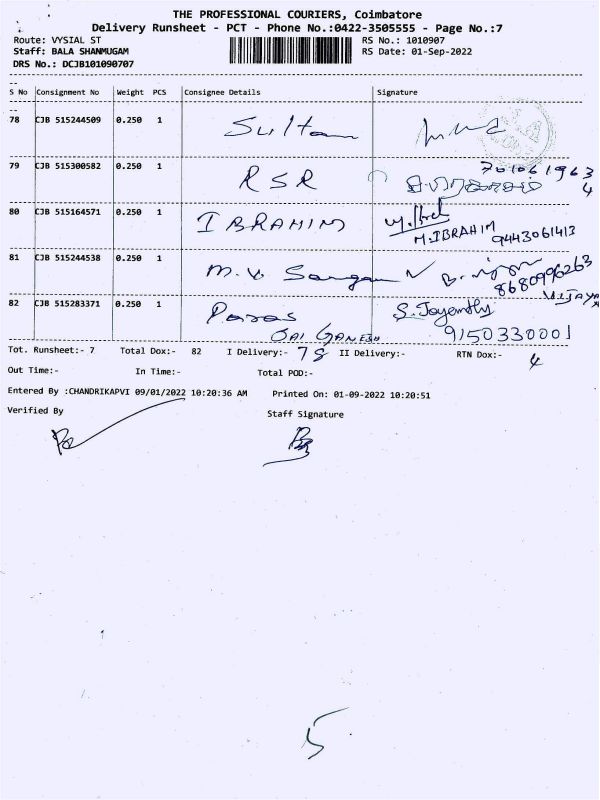 THE PROFESSIONAL COURIERS, Coimbatore
Delivery Runsheet - PCT - Phone No.:0422-3505555 - Page No.:7
Route: VYSIAL ST RS No.: 1010907
Staff: BALA SHANMUGAM RS Date: 01-Sep-2022
DRS No.: DCJB101090707
S No Consignment No Weight PCS Consignee Details Signature
78 CJB 515244509 0.250 1 Sultan
79 CJB 515300582 0.250 1 RSR 7010619634
80 CJB 515164571 0.250 1 IBRAHIM M.IBRAHIM 9443061413
81 CJB 515244538 0.250 1 M.V. 8680996263 VIJAYA
82 CJB 515283371 0.250 1 Paras S. Jayanthy
SAI GANESH 9150330001
Tot. Runsheet:- 7 Total Dox:- 82 I Delivery:- 78 II Delivery:- RTN Dox:- 4
Out Time:- In Time:- Total POD:-
Entered By :CHANDRIKAPVI 09/01/2022 10:20:36 AM Printed On: 01-09-2022 10:20:51
Verified By Staff Signature
5